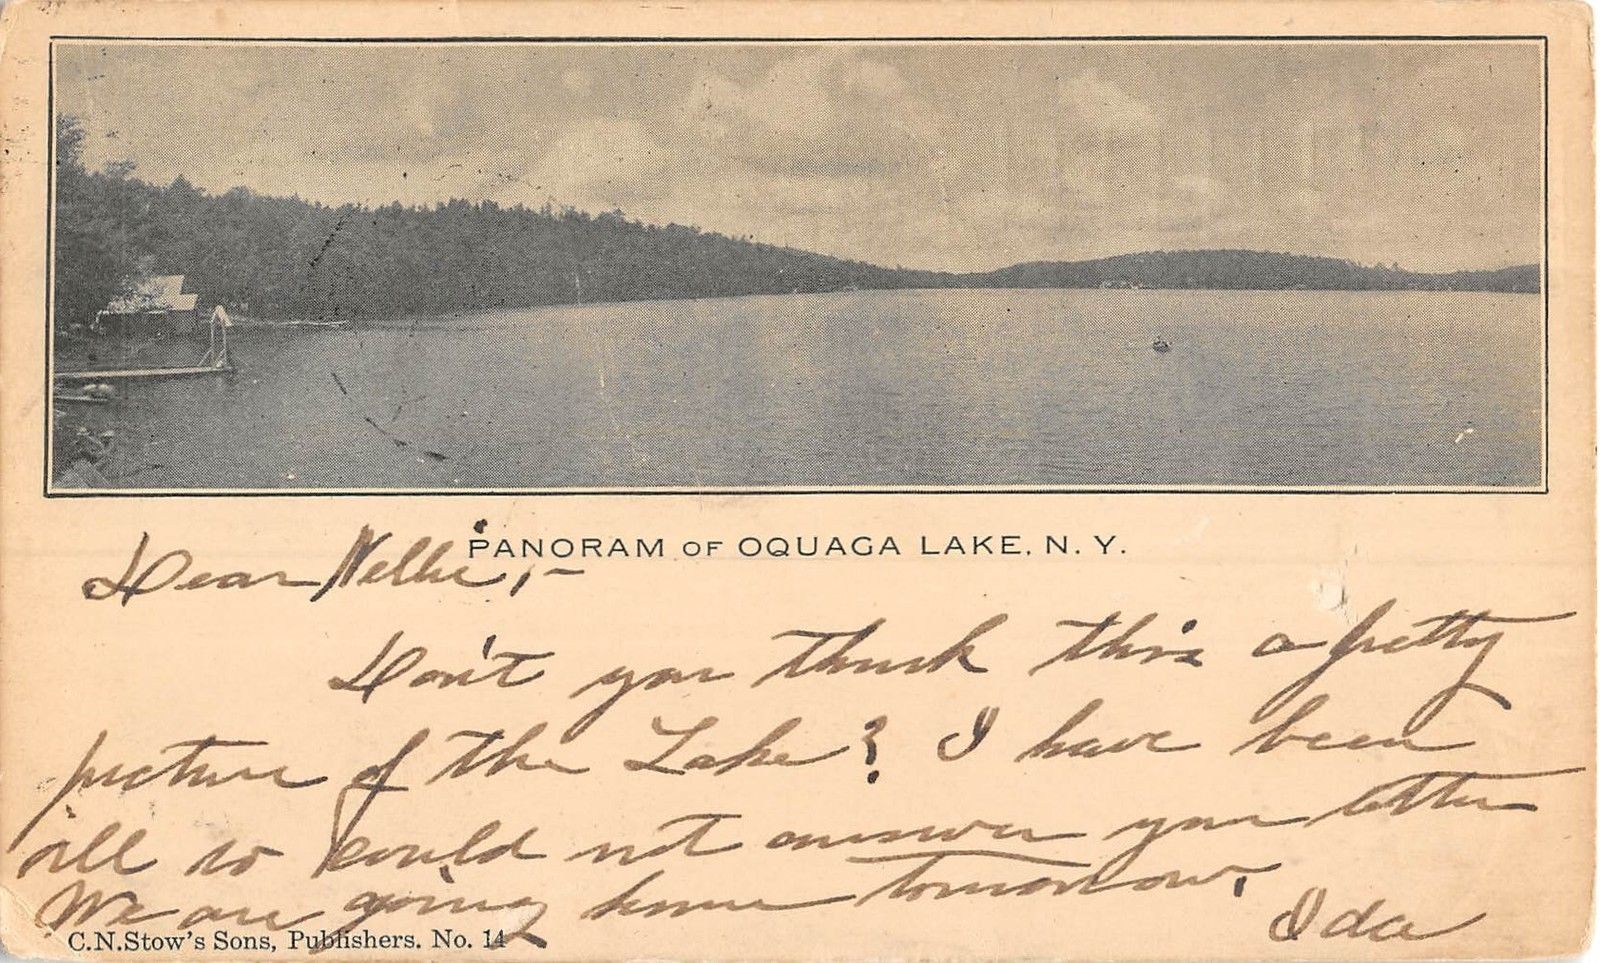 PANORAM OF OQUAGA LAKE, N. Y.
Dear Nellie,-
Don't you think this a pretty
picture of the Lake? I have been
ill so could not answer your letter
We are going home tomorrow.
Ida
C.N.Stow's Sons, Publishers. No. 14